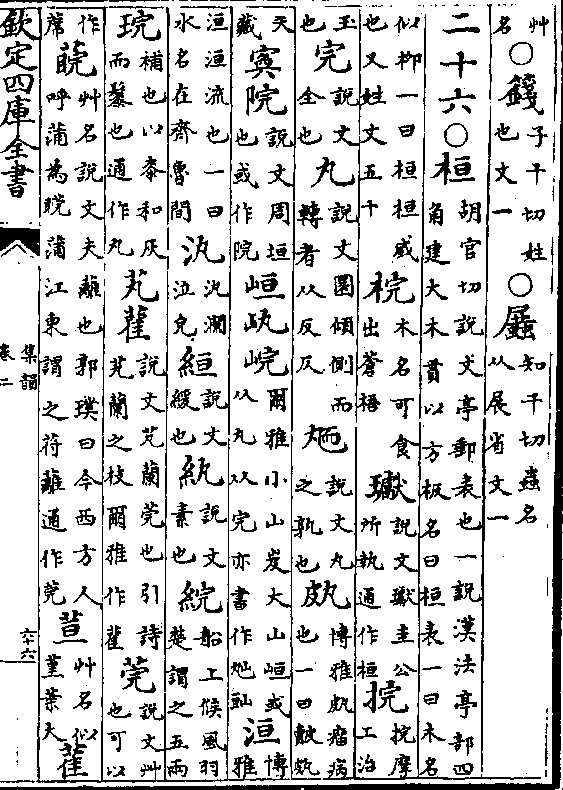 艸名○籛子千切姓也文一○知干切蟲名从展省文一
二十六○桓胡官切說文亭郵表也一說漢法亭部四角建大木貫以方板名曰桓表一曰木名
似柳一曰桓桓威也又姓文五十梡木名可食出蒼梧瓛說文瓛圭公所執通作桓捖捖摩工治
玉也完說文全也丸說文圜傾側而轉者从反仄說文丸之孰也博雅瘤病也一曰
天藏寏院說文周垣也或作院峘岏爾雅小山岌大山峘或从丸从完亦書作洹博雅
洹洹流也一曰水名在齊魯間汍汍瀾泣皃絙說文緩也紈說文素也綄船工候風羽楚謂之五兩
垸補也以桼和灰而䰍也通作丸芄雚說文芄蘭莞也引詩芄蘭之枝爾雅作雚莞說文艸也可以
作席艸名說文夫蘺也郭璞曰今西方人呼蒲為莞蒲江東謂之苻蘺通作莞荁艸名似堇葉大雚
欽定四庫全書
集韻
卷二